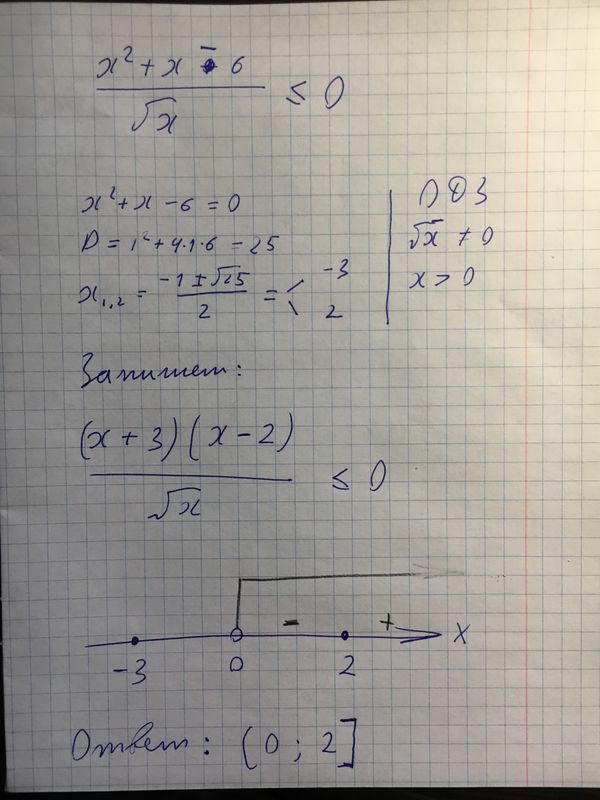 x² + x - 6 / √x ≤ 0
x² + x - 6 = 0
D = 1² + 4·1·6 = 25
x₁,₂ = -1 ± √25 / 2 = < -3 2
ОДЗ
√x ≠ 0
x > 0
Запишем:
(x + 3)(x - 2) / √x ≤ 0
- +
-3 0 2 x
Ответ: (0 ; 2]